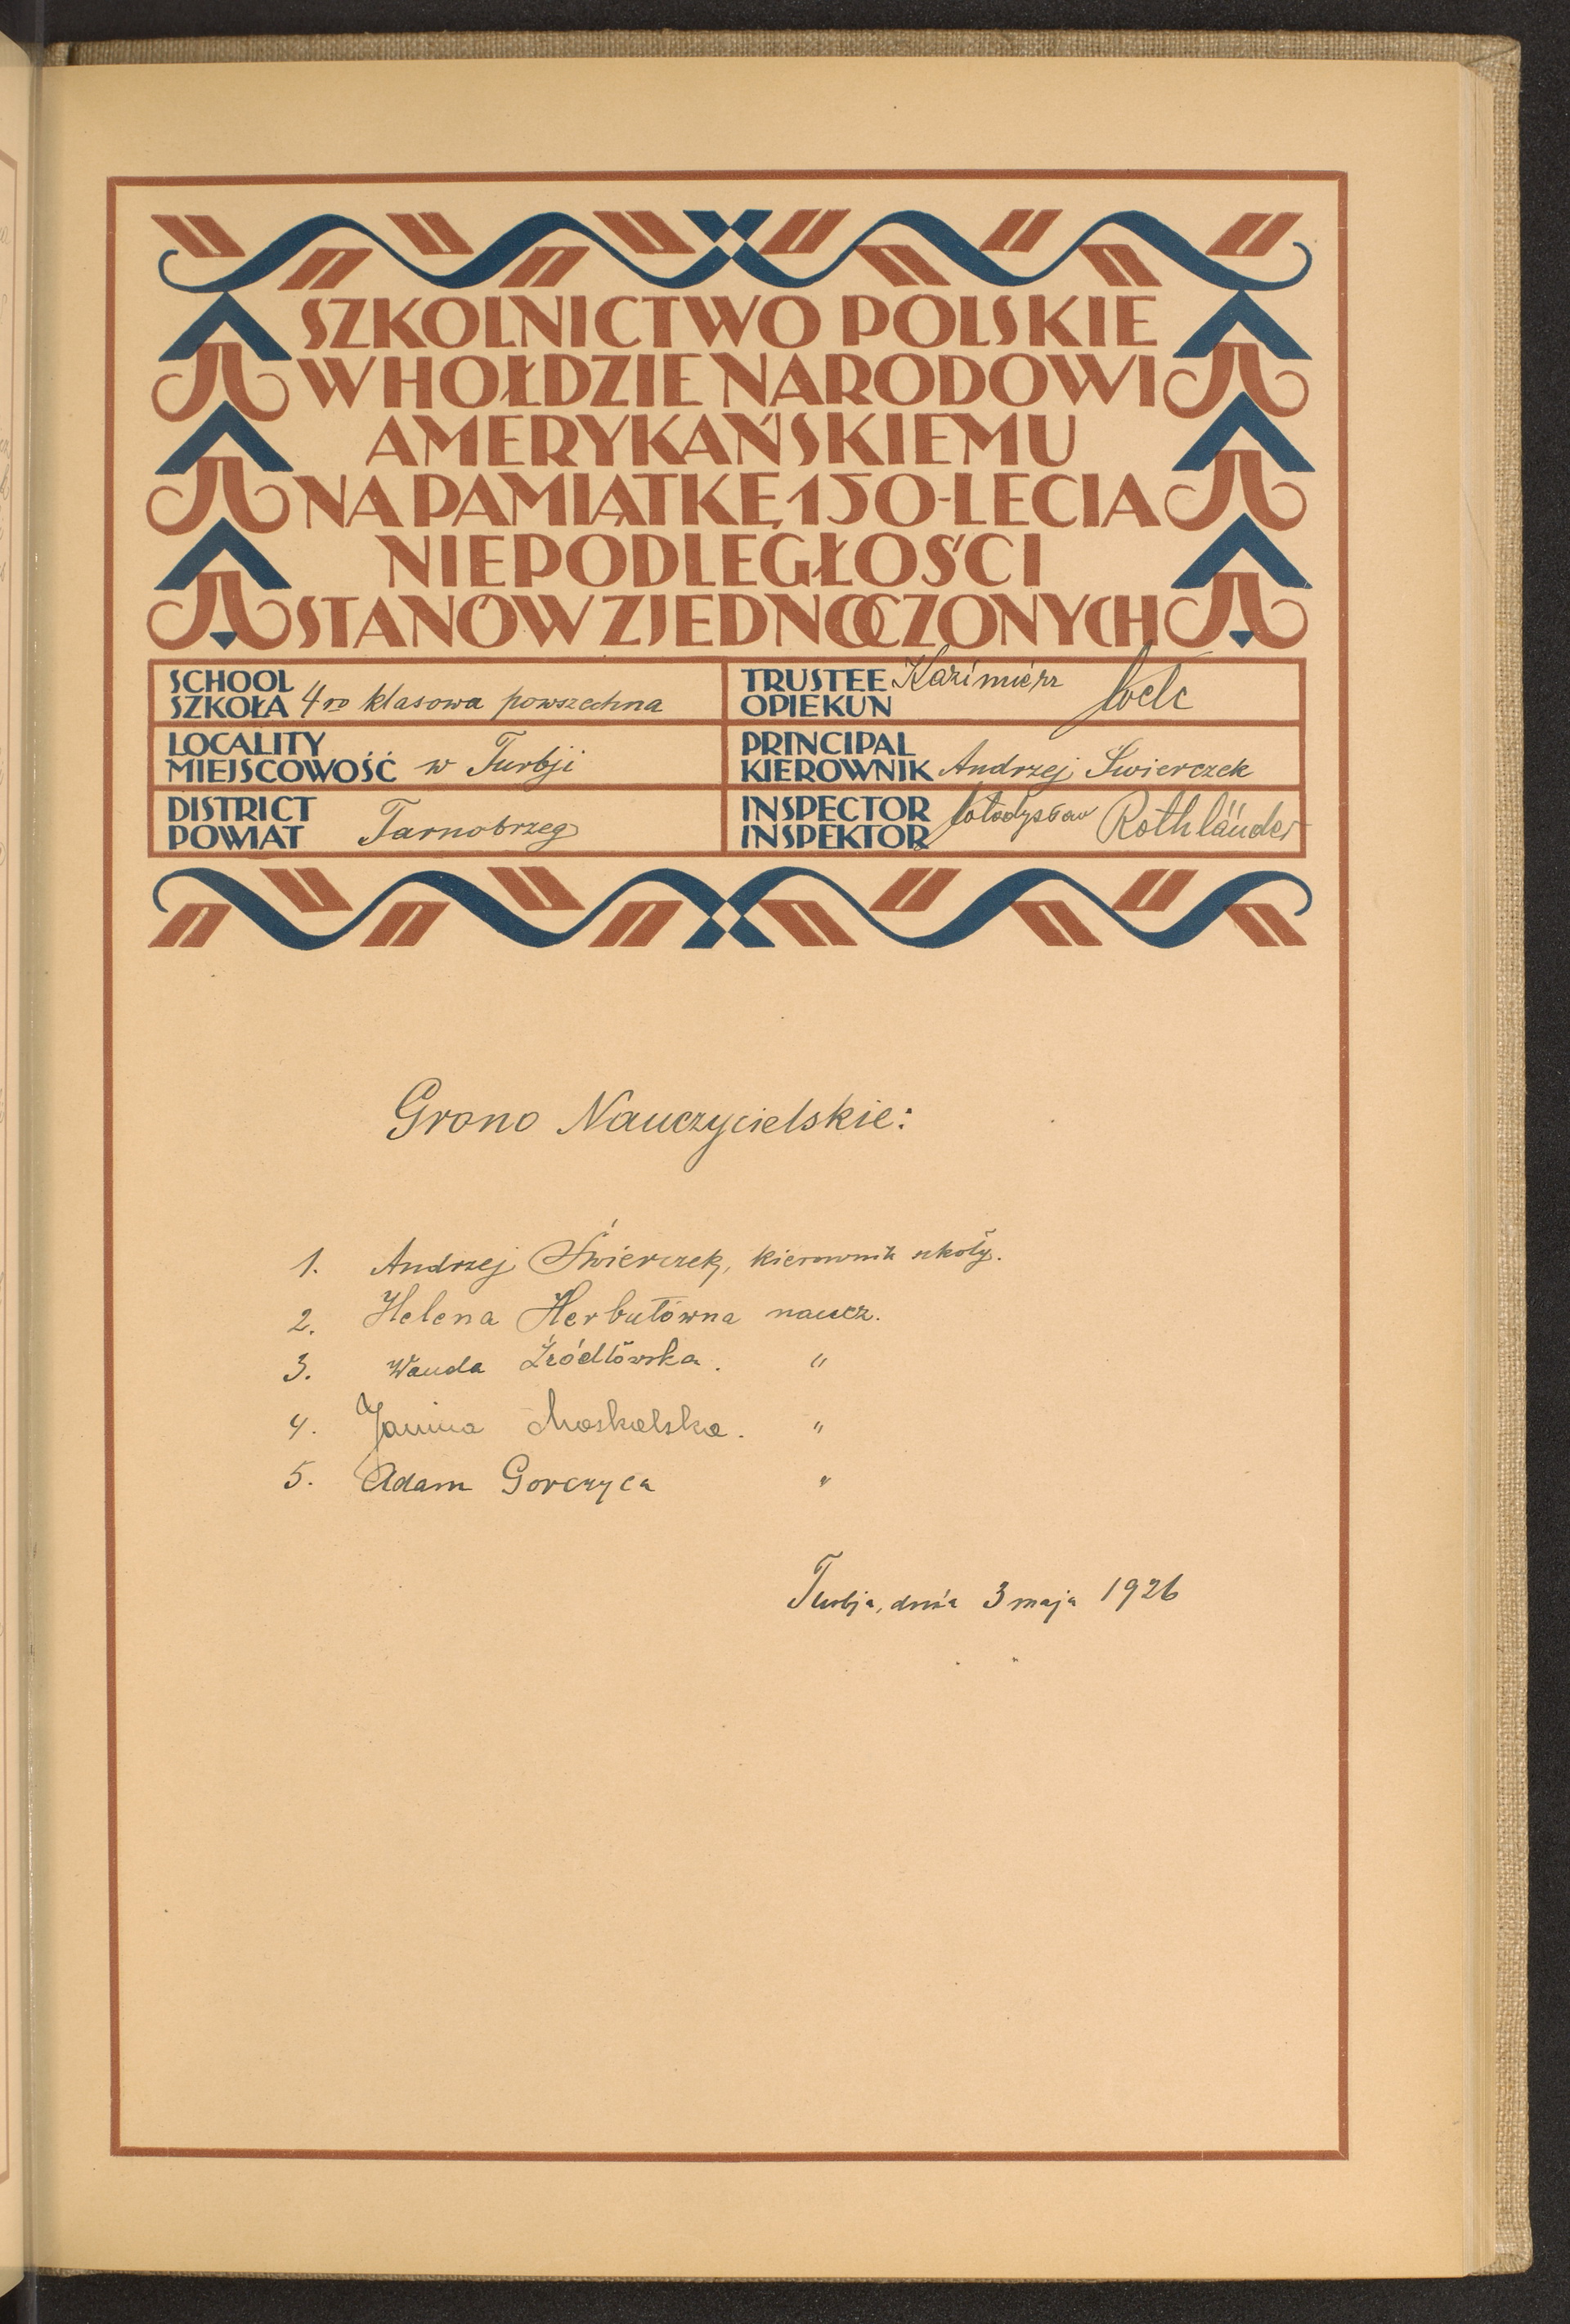 SZKOLNICTWO POLSKIE
W HOŁDZIE NARODOWI
AMERYKAŃSKIEMU
NA PAMIĄTKĘ 150-LECIA
NIEPODLEGŁOŚCI
STANÓW ZJEDNOCZONYCH
SCHOOL
SZKOŁA 4ro klasowa powszechna
TRUSTEE
OPIEKUN Kazimierz Welc
LOCALITY
MIEJSCOWOŚĆ w Turbji
PRINCIPAL
KIEROWNIK Andrzej Swierczek
DISTRICT
POWIAT Tarnobrzeg
INSPECTOR
INSPEKTOR Władysław Rothländer
Grono Nauczycielskie:
1. Andrzej Świerczek, kierownik szkoły.
2. Helena Herbutówna naucz.
3. Wanda Źródłowska. "
4. Janina Moskalska. "
5. Adam Gorczyca "
Turbja, dnia 3 maja 1926